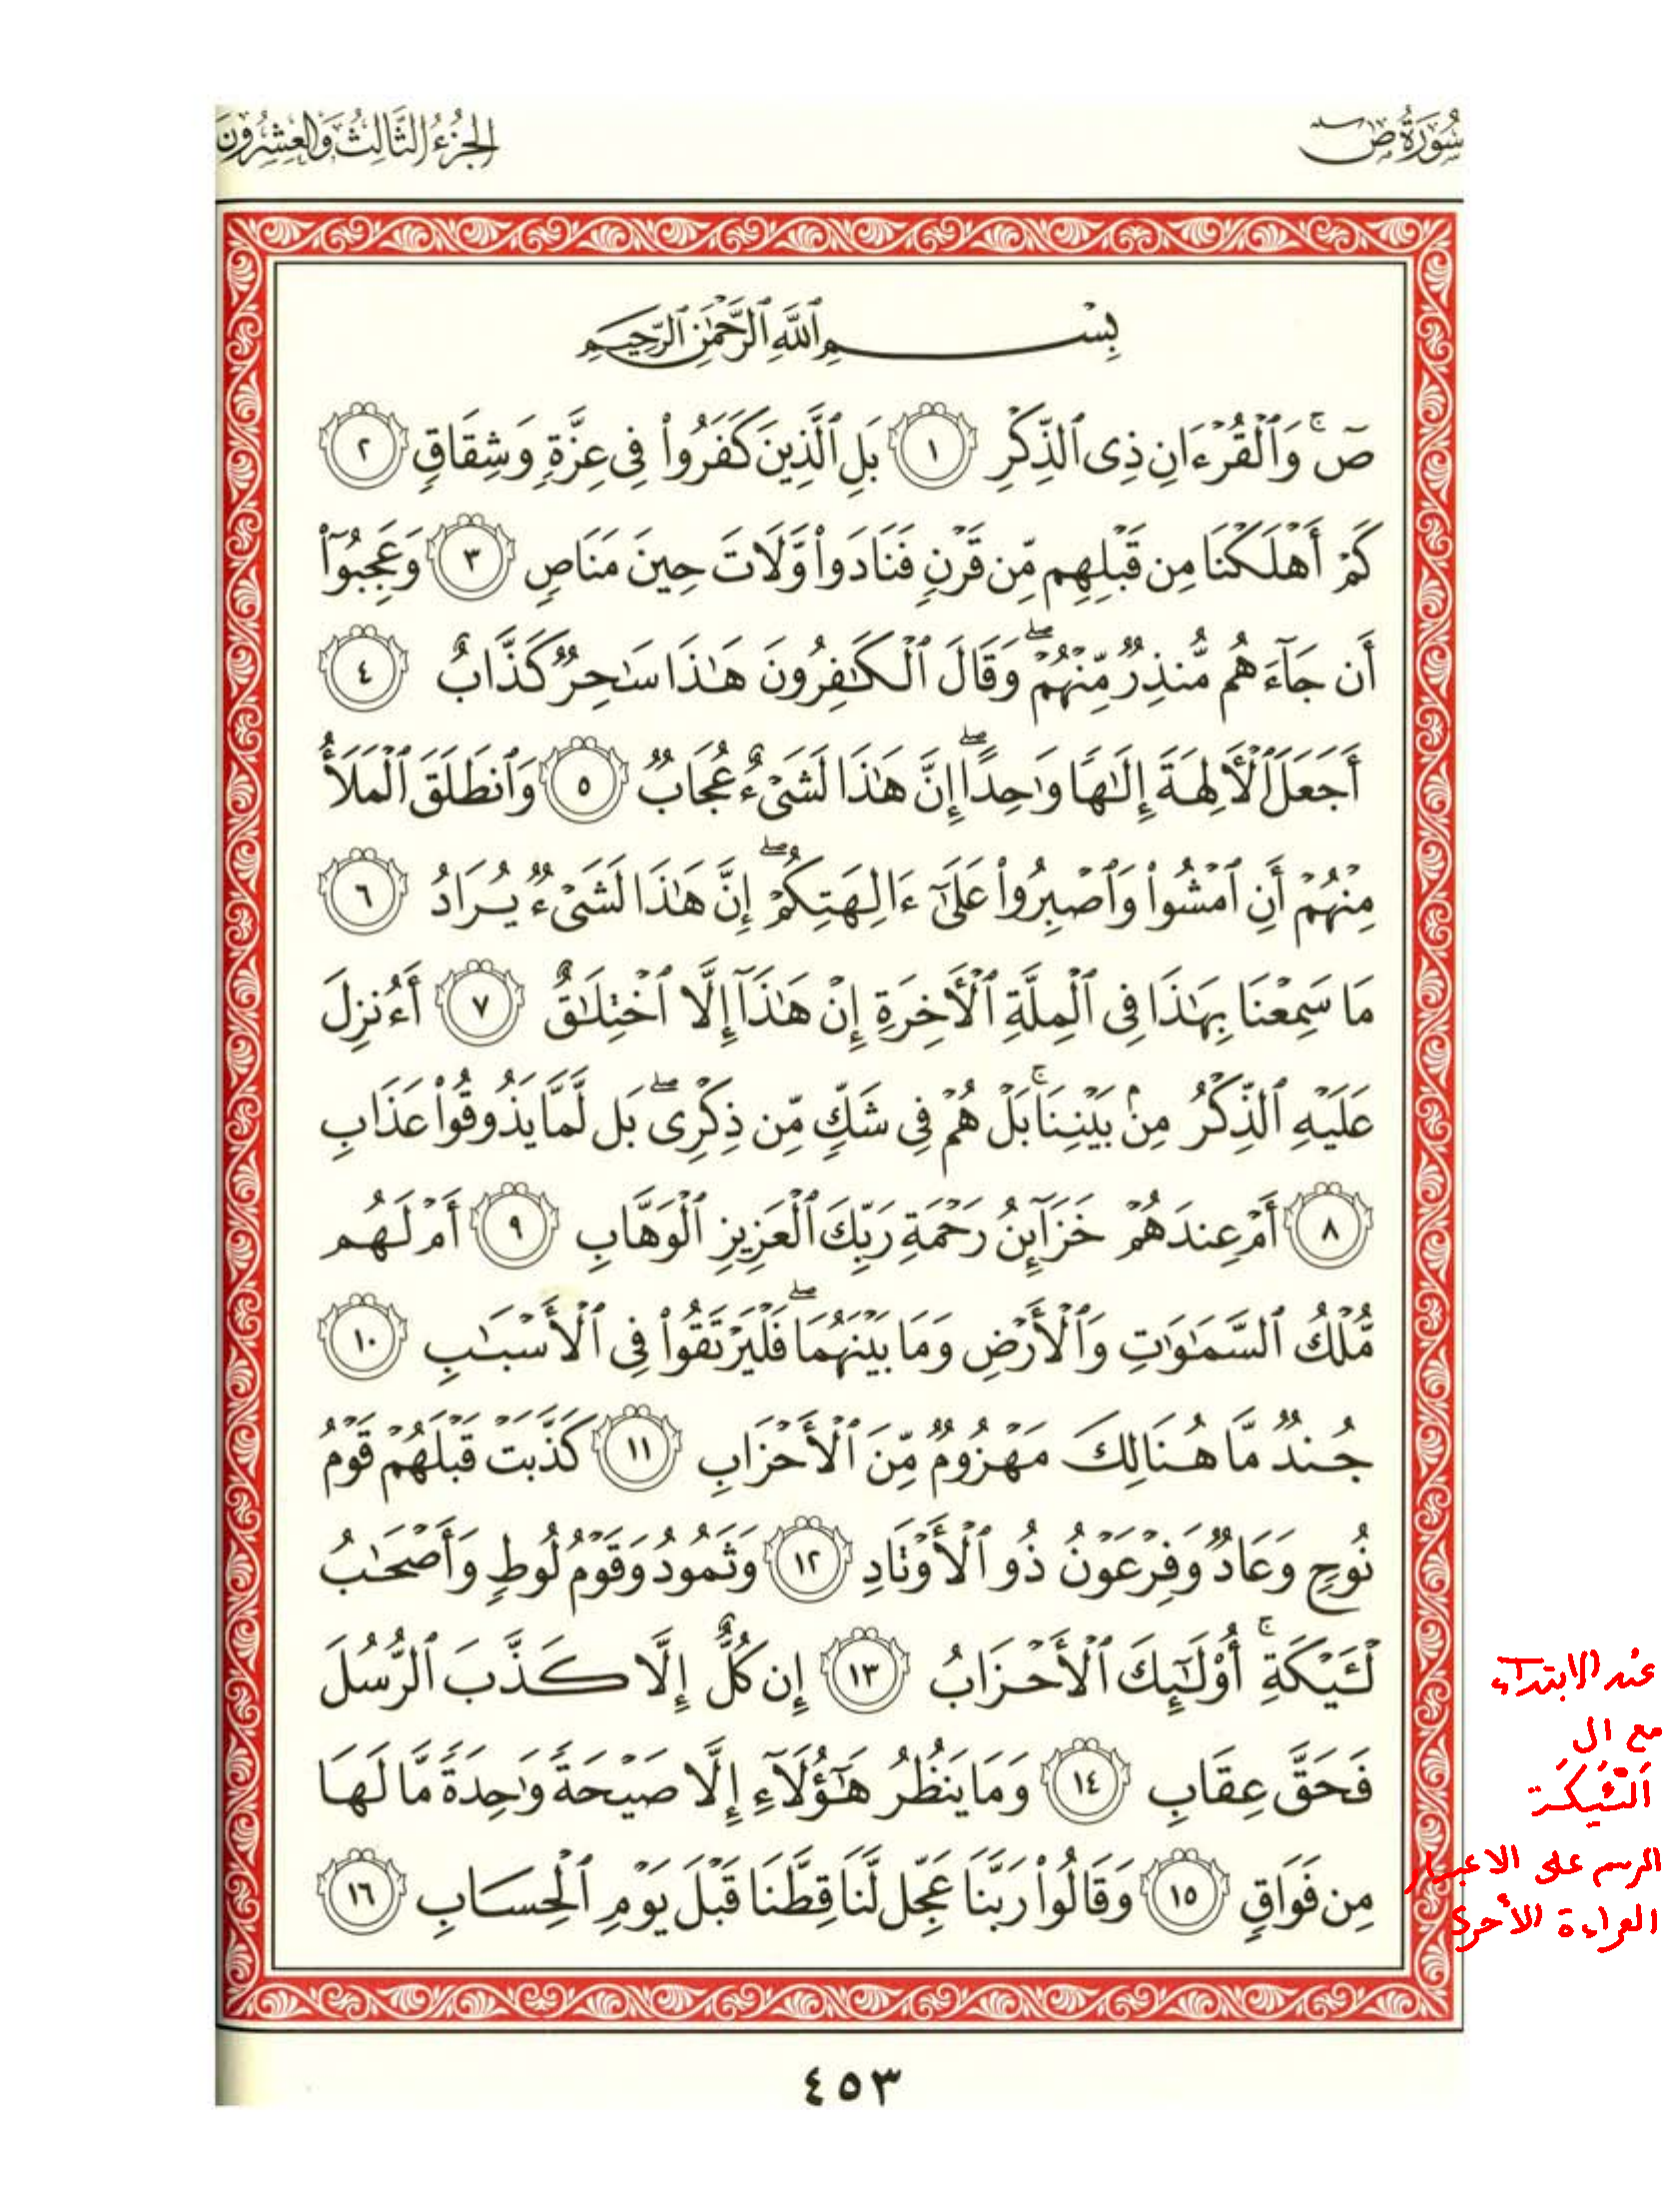 سُورَةُ صٓ
الجُزْءُ الثَّالِثُ وَالعِشْرُونَ
بِسْمِ ٱللَّهِ ٱلرَّحْمَٰنِ ٱلرَّحِيمِ
صٓۚ وَٱلْقُرْءَانِ ذِى ٱلذِّكْرِ ١ بَلِ ٱلَّذِينَ كَفَرُوا۟ فِى عِزَّةٍ وَشِقَاقٍ ٢
كَمْ أَهْلَكْنَا مِن قَبْلِهِم مِّن قَرْنٍ فَنَادَوا۟ وَّلَاتَ حِينَ مَنَاصٍ ٣ وَعَجِبُوٓا۟
أَن جَآءَهُم مُّنذِرٌ مِّنْهُمْۖ وَقَالَ ٱلْكَٰفِرُونَ هَٰذَا سَٰحِرٌ كَذَّابٌ ٤
أَجَعَلَ ٱلْأَلِهَةَ إِلَٰهًا وَٰحِدًاۖ إِنَّ هَٰذَا لَشَىْءٌ عُجَابٌ ٥ وَٱنطَلَقَ ٱلْمَلَأُ
مِنْهُمْ أَنِ ٱمْشُوا۟ وَٱصْبِرُوا۟ عَلَىٰٓ ءَالِهَتِكُمْۖ إِنَّ هَٰذَا لَشَىْءٌ يُرَادُ ٦
مَا سَمِعْنَا بِهَٰذَا فِى ٱلْمِلَّةِ ٱلْأَخِرَةِ إِنْ هَٰذَآ إِلَّا ٱخْتِلَٰقٌ ٧ أَءُنزِلَ
عَلَيْهِ ٱلذِّكْرُ مِنۢ بَيْنِنَاۚ بَلْ هُمْ فِى شَكٍّ مِّن ذِكْرِىۖ بَل لَّمَّا يَذُوقُوا۟ عَذَابِ
٨ أَمْ عِندَهُمْ خَزَآئِنُ رَحْمَةِ رَبِّكَ ٱلْعَزِيزِ ٱلْوَهَّابِ ٩ أَمْ لَهُم
مُّلْكُ ٱلسَّمَٰوَٰتِ وَٱلْأَرْضِ وَمَا بَيْنَهُمَاۖ فَلْيَرْتَقُوا۟ فِى ٱلْأَسْبَٰبِ ١٠
جُندٌ مَّا هُنَالِكَ مَهْزُومٌ مِّنَ ٱلْأَحْزَابِ ١١ كَذَّبَتْ قَبْلَهُمْ قَوْمُ
نُوحٍ وَعَادٌ وَفِرْعَوْنُ ذُو ٱلْأَوْتَادِ ١٢ وَثَمُودُ وَقَوْمُ لُوطٍ وَأَصْحَٰبُ
لْـَٔيْكَةِۚ أُو۟لَٰٓئِكَ ٱلْأَحْزَابُ ١٣ إِن كُلٌّ إِلَّا كَذَّبَ ٱلرُّسُلَ
فَحَقَّ عِقَابِ ١٤ وَمَا يَنظُرُ هَٰٓؤُلَآءِ إِلَّا صَيْحَةً وَٰحِدَةً مَّا لَهَا
مِن فَوَاقٍ ١٥ وَقَالُوا۟ رَبَّنَا عَجِّل لَّنَا قِطَّنَا قَبْلَ يَوْمِ ٱلْحِسَابِ ١٦
عند الابتداء
مع ال
الرسم على الاعتبار
القراءة الأخرى
٤٥٣